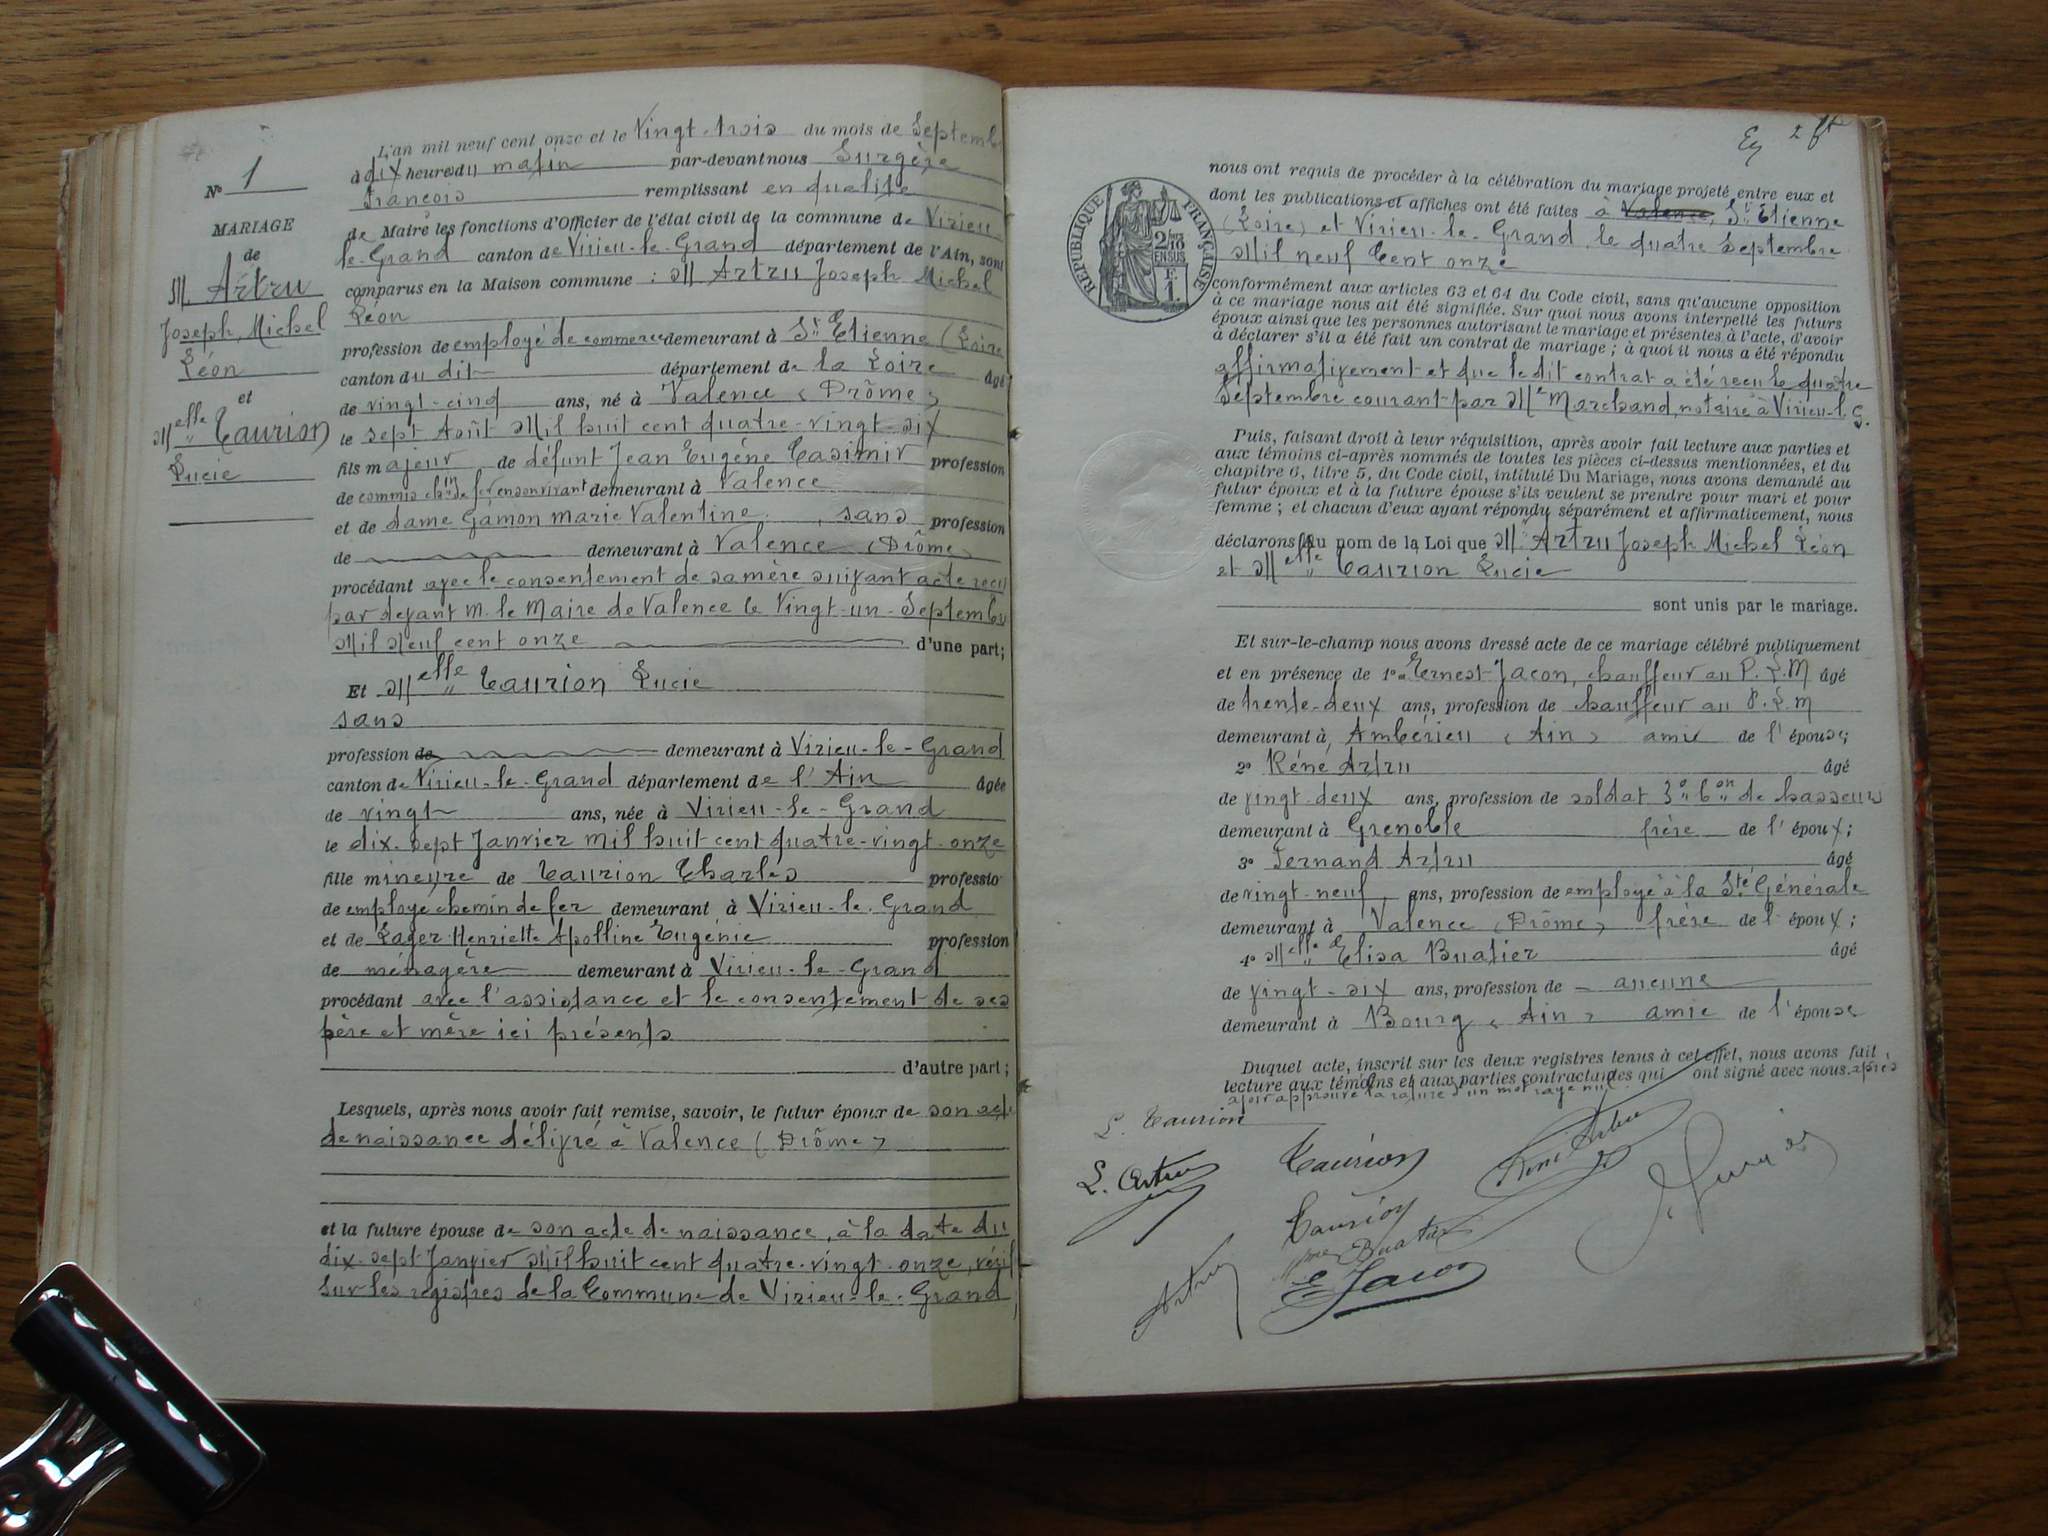 N° 1
MARIAGE
de
M. Artru
Joseph, Michel
Léon
et
Melle Taurion
Lucie
L'an mil neuf cent onze et le Vingt-trois du mois de Septemb
à dix heures du matin par-devant nous Surgère
François remplissant en qualité
de Maire les fonctions d'Officier de l'état civil de la commune de Virieu
le-Grand canton de Virieu-le-Grand département de l'Ain, sont
comparus en la Maison commune : M Artru Joseph Michel
Léon
profession de employé de commerce demeurant à St Etienne (Loire
canton du dit département de la Loire âgé
de vingt-cinq ans, né à Valence (Drôme)
le sept Août Mil huit cent quatre-vingt-six
fils majeur de défunt Jean Eugène Casimir profession
de commis chin de fer en son vivant demeurant à Valence
et de dame Gamon marie Valentine, sans profession
de demeurant à Valence (Drôme)
procédant avec le consentement de sa mère suivant acte reçu
par devant M. le Maire de Valence le Vingt-un-Septembre
Mil Neuf cent onze d'une part;
Et Melle Taurion Lucie
sans
profession de demeurant à Virieu-le-Grand
canton de Virieu-le-Grand département de l'Ain âgée
de vingt ans, née à Virieu-le-Grand
le dix-sept Janvier mil huit cent quatre-vingt-onze
fille mineure de Taurion Charles professio
de employé chemin de fer demeurant à Virieu-le-Grand
et de Lager Henriette Apolline Eugénie profession
de ménagère demeurant à Virieu-le-Grand
procédant avec l'assistance et le consentement de ses
père et mère ici présents
d'autre part;
Lesquels, après nous avoir fait remise, savoir, le futur époux de son acte
de naissance délivré à Valence (Drôme)
et la future épouse de son acte de naissance, à la date du
dix-sept Janvier Mil huit cent quatre-vingt-onze, vérif
sur les registres de la Commune de Virieu-le-Grand,
RÉPUBLIQUE FRANÇAISE
2/10
EN SUS
F.
1.
nous ont requis de procéder à la célébration du mariage projeté entre eux et
dont les publications et affiches ont été faites à Valence, St Etienne
(Loire) et Virieu-le-Grand le quatre Septembre
Mil neuf Cent onze
conformément aux articles 63 et 64 du Code civil, sans qu'aucune opposition
à ce mariage nous ait été signifiée. Sur quoi nous avons interpellé les futurs
époux ainsi que les personnes autorisant le mariage et présentes à l'acte, d'avoir
à déclarer s'il a été fait un contrat de mariage; à quoi il nous a été répondu
affirmativement et que le dit contrat a été reçu le quatre
Septembre courant par Me Marchand, notaire à Virieu-l-G.
Puis, faisant droit à leur réquisition, après avoir fait lecture aux parties et
aux témoins ci-après nommés de toutes les pièces ci-dessus mentionnées, et du
chapitre 6, titre 5, du Code civil, intitulé Du Mariage, nous avons demandé au
futur époux et à la future épouse s'ils veulent se prendre pour mari et pour
femme; et chacun d'eux ayant répondu séparément et affirmativement, nous
déclarons au nom de la Loi que M. Artru Joseph Michel Léon
et Melle Taurion Lucie
sont unis par le mariage.
Et sur-le-champ nous avons dressé acte de ce mariage célébré publiquement
et en présence de 1° Ernest Jacon, chauffeur au P.L.M âgé
de trente-deux ans, profession de chauffeur au P.L.M
demeurant à Ambérieu (Ain) amie de l'épouse;
2° Réné Artru âgé
de vingt-deux ans, profession de soldat 3e Con de chasseurs
demeurant à Grenoble frère de l'époux;
3° Fernand Artru âgé
de vingt-neuf ans, profession de employé à la Sté Générale
demeurant à Valence (Drôme) frère de l'époux;
4° Melle Elisa Buatier âgé
de vingt-six ans, profession de aucune
demeurant à Bourg (Ain) amie de l'épouse
Duquel acte, inscrit sur les deux registres tenus à cet effet, nous avons fait
lecture aux témoins et aux parties contractantes qui ont signé avec nous. après
avoir approuvé la rature d'un mot rayé nul
L. Taurion
L. Artru
Taurion
René Artru
Taurion
Buatier
Artru
E Jacon